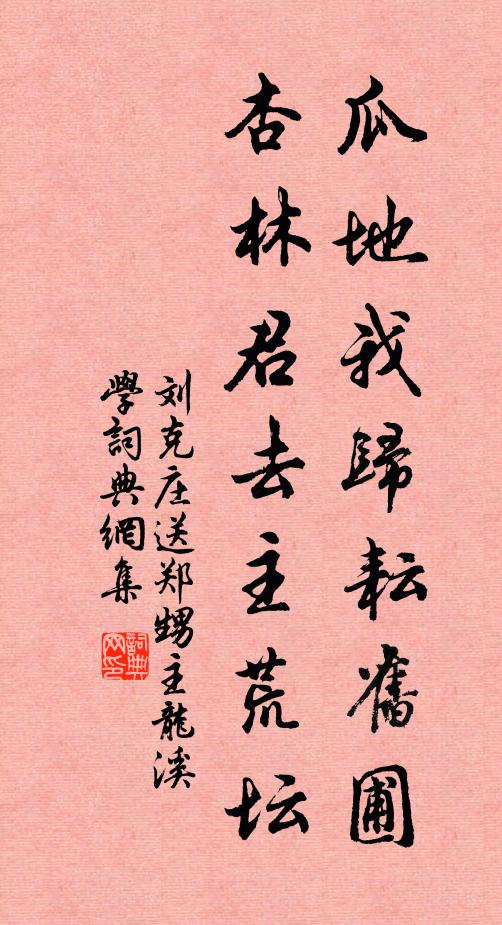 瓜地我歸耘舊圃
杏林君去主荒坛
刘克庄送郑甥主龍溪
學詞典網集
詞典网印